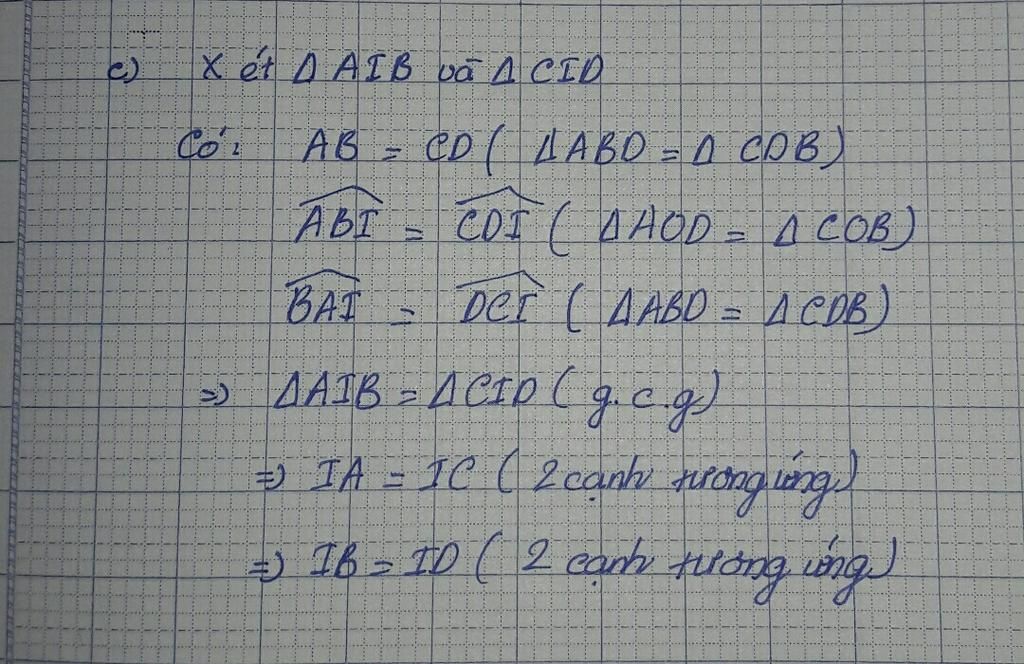 c) Xét ΔAIB và ΔCID
Có: AB = CD ( ΔABD = Δ CDB)
\widehat{ABI} = \widehat{CDI} ( ΔAOD = Δ COB)
\widehat{BAI} = \widehat{DCI} ( ΔABD = ΔCDB)
=> ΔAIB = ΔCID ( g.c.g)
=> IA = IC ( 2 cạnh tương ứng)
=> IB = ID ( 2 cạnh tương ứng)